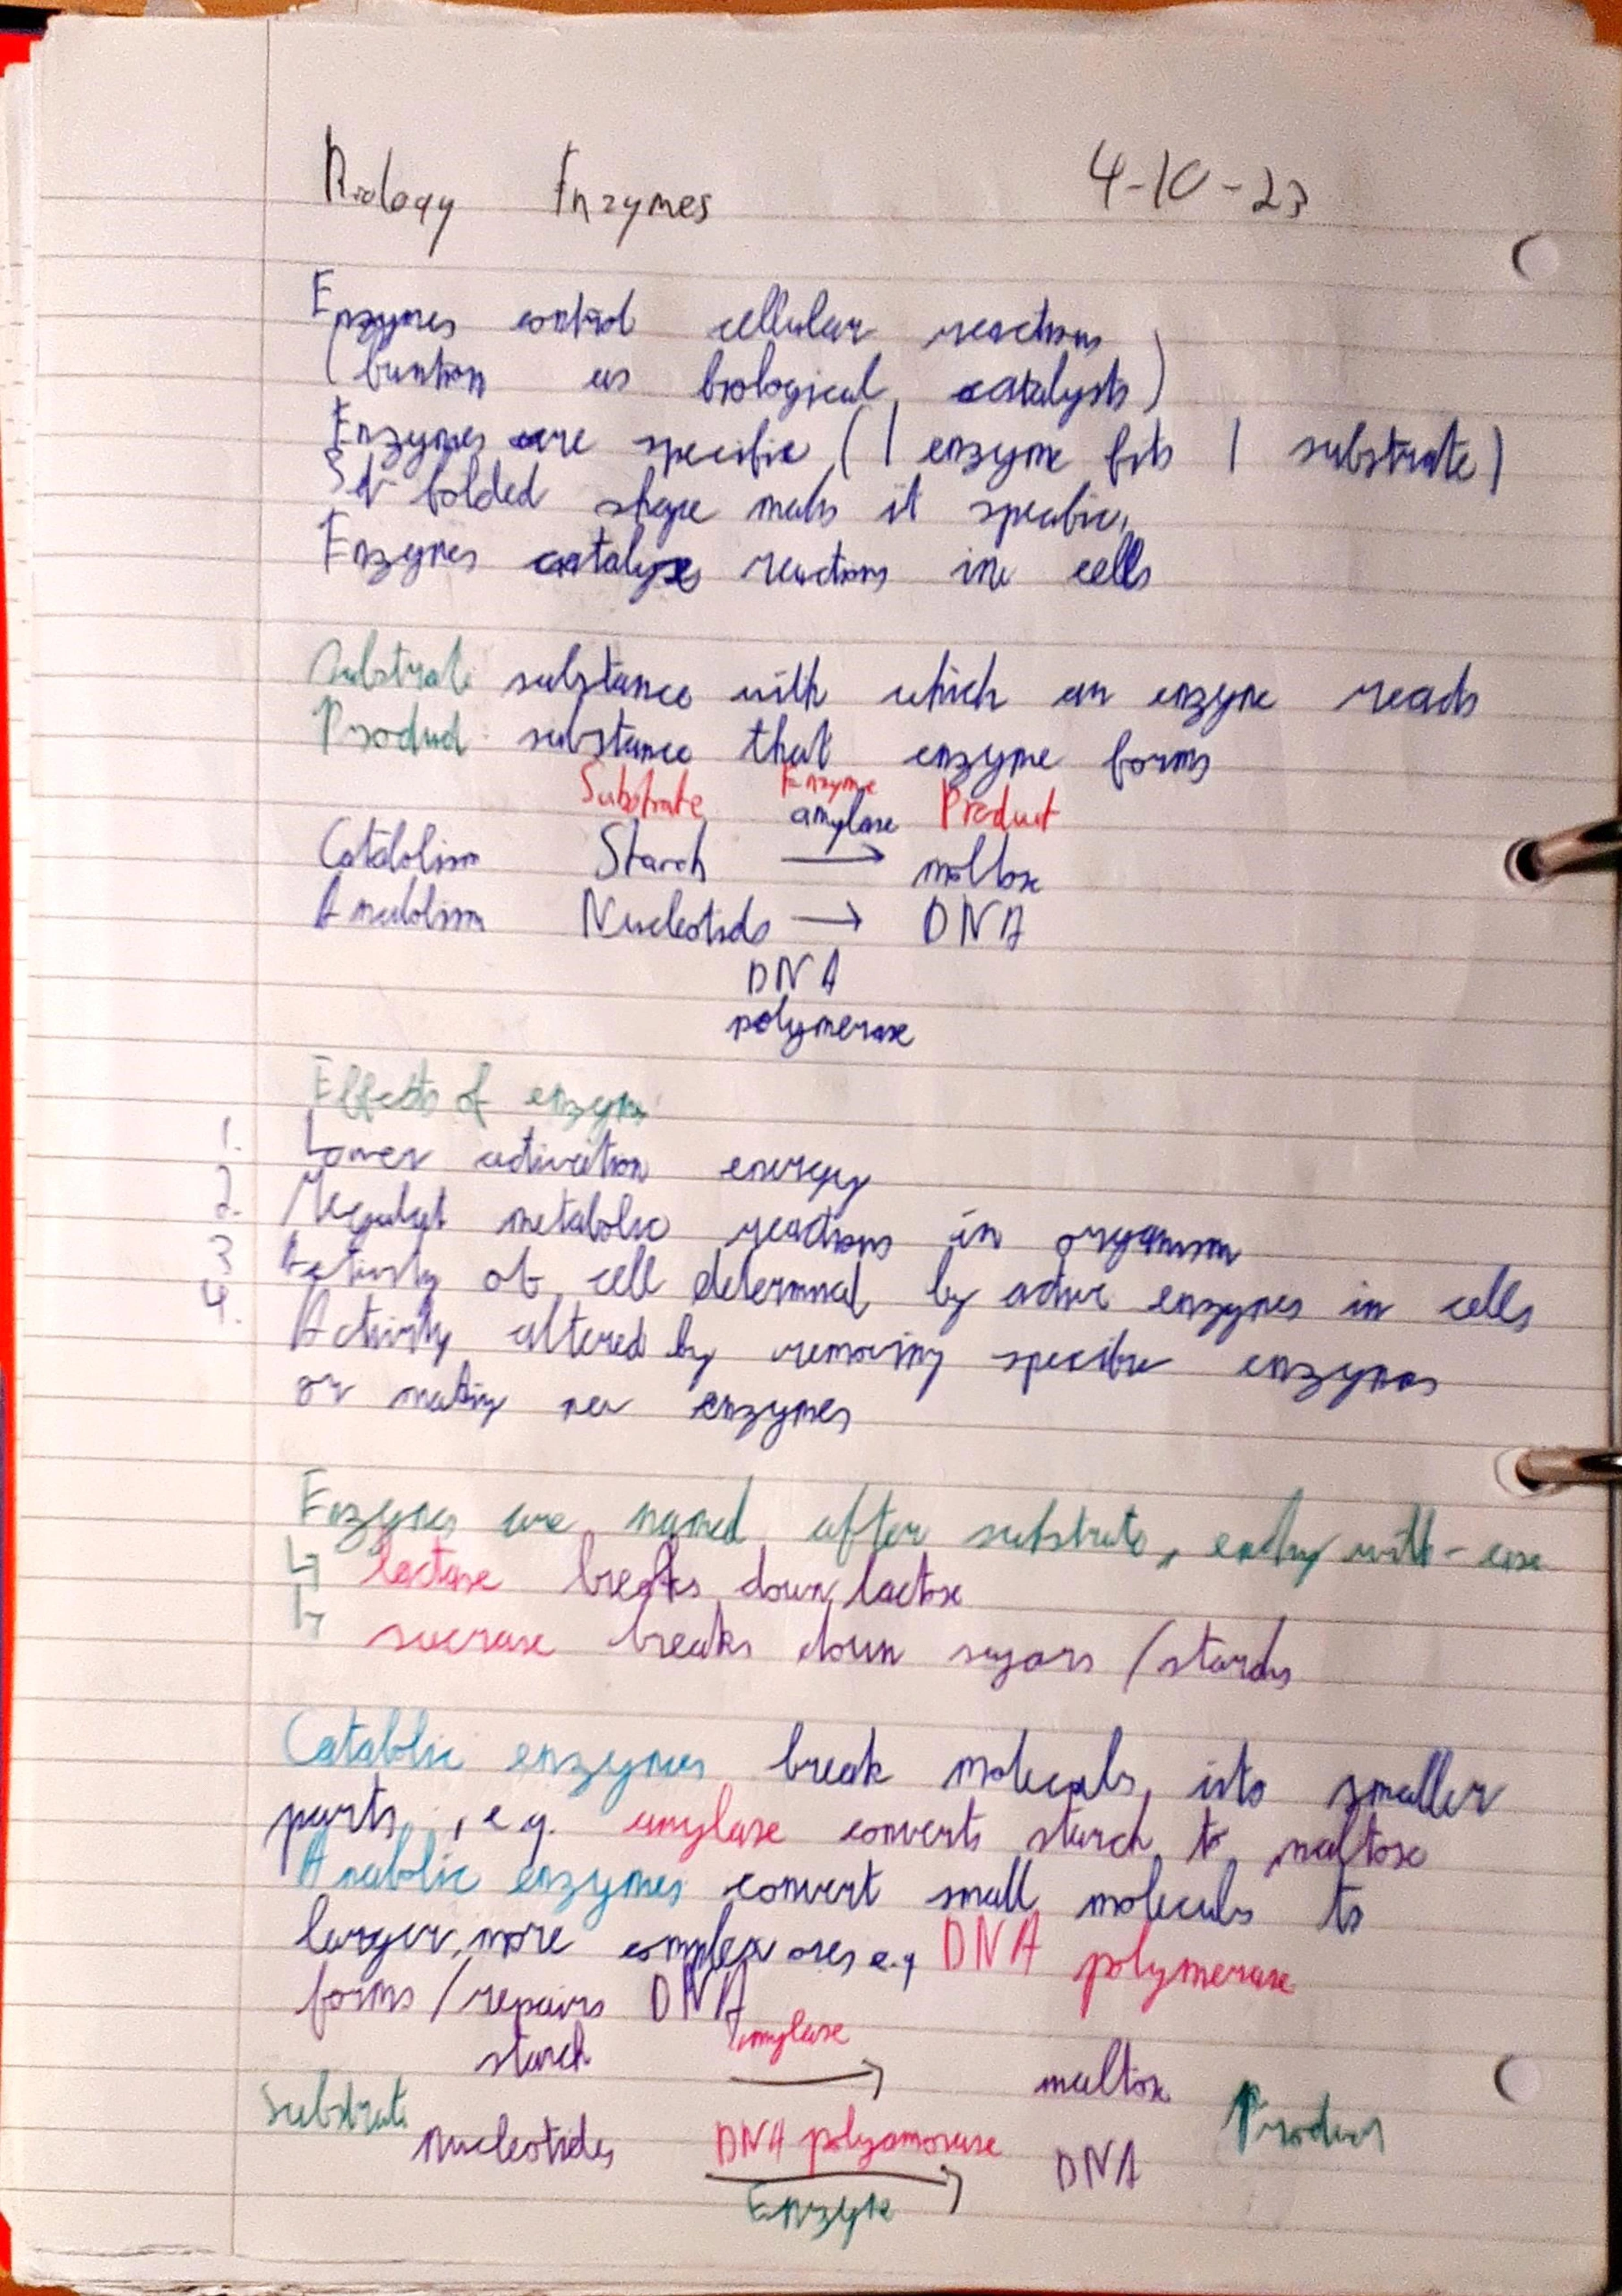 Biology Enzymes 4-10-23
Enzymes control cellular reactions
(funtion as biological catalysts)
Enzymes are specific (1 enzyme fits 1 substrate)
folded shape maks it specific,
Enzymes catalyse reactions in cells
Substrate substance with which an enzyme reacts
Product substance that enzyme forms
Substrate Enzyme Product
amylase
Catabolism Starch → maltose
Anabolism Nucleotids → DNA
DNA
polymerase
Effects of enzyms
1. Lower activation energy
2. Regulat metabolic reactions in organism
3 Activity of cell determined by active enzymes in cells
4. Activity altered by removing specific enzymes
or making new enzymes
Enzymes are named after substrate, ending with -ase
↳ lactase breaks down lactose
↳ sucrase breaks down sugars / starchs
Catablic enzymes break moleculs into smaller
parts, e.g. amylase converts starch to maltose
Anabolic enzymes convert small moleculs to
larger, more complex ones e.g DNA polymerase
forms / repairs DNA
starch amylase → maltose
Substrate Product
Nucleotides DNA polyamorase → DNA
Enzyme